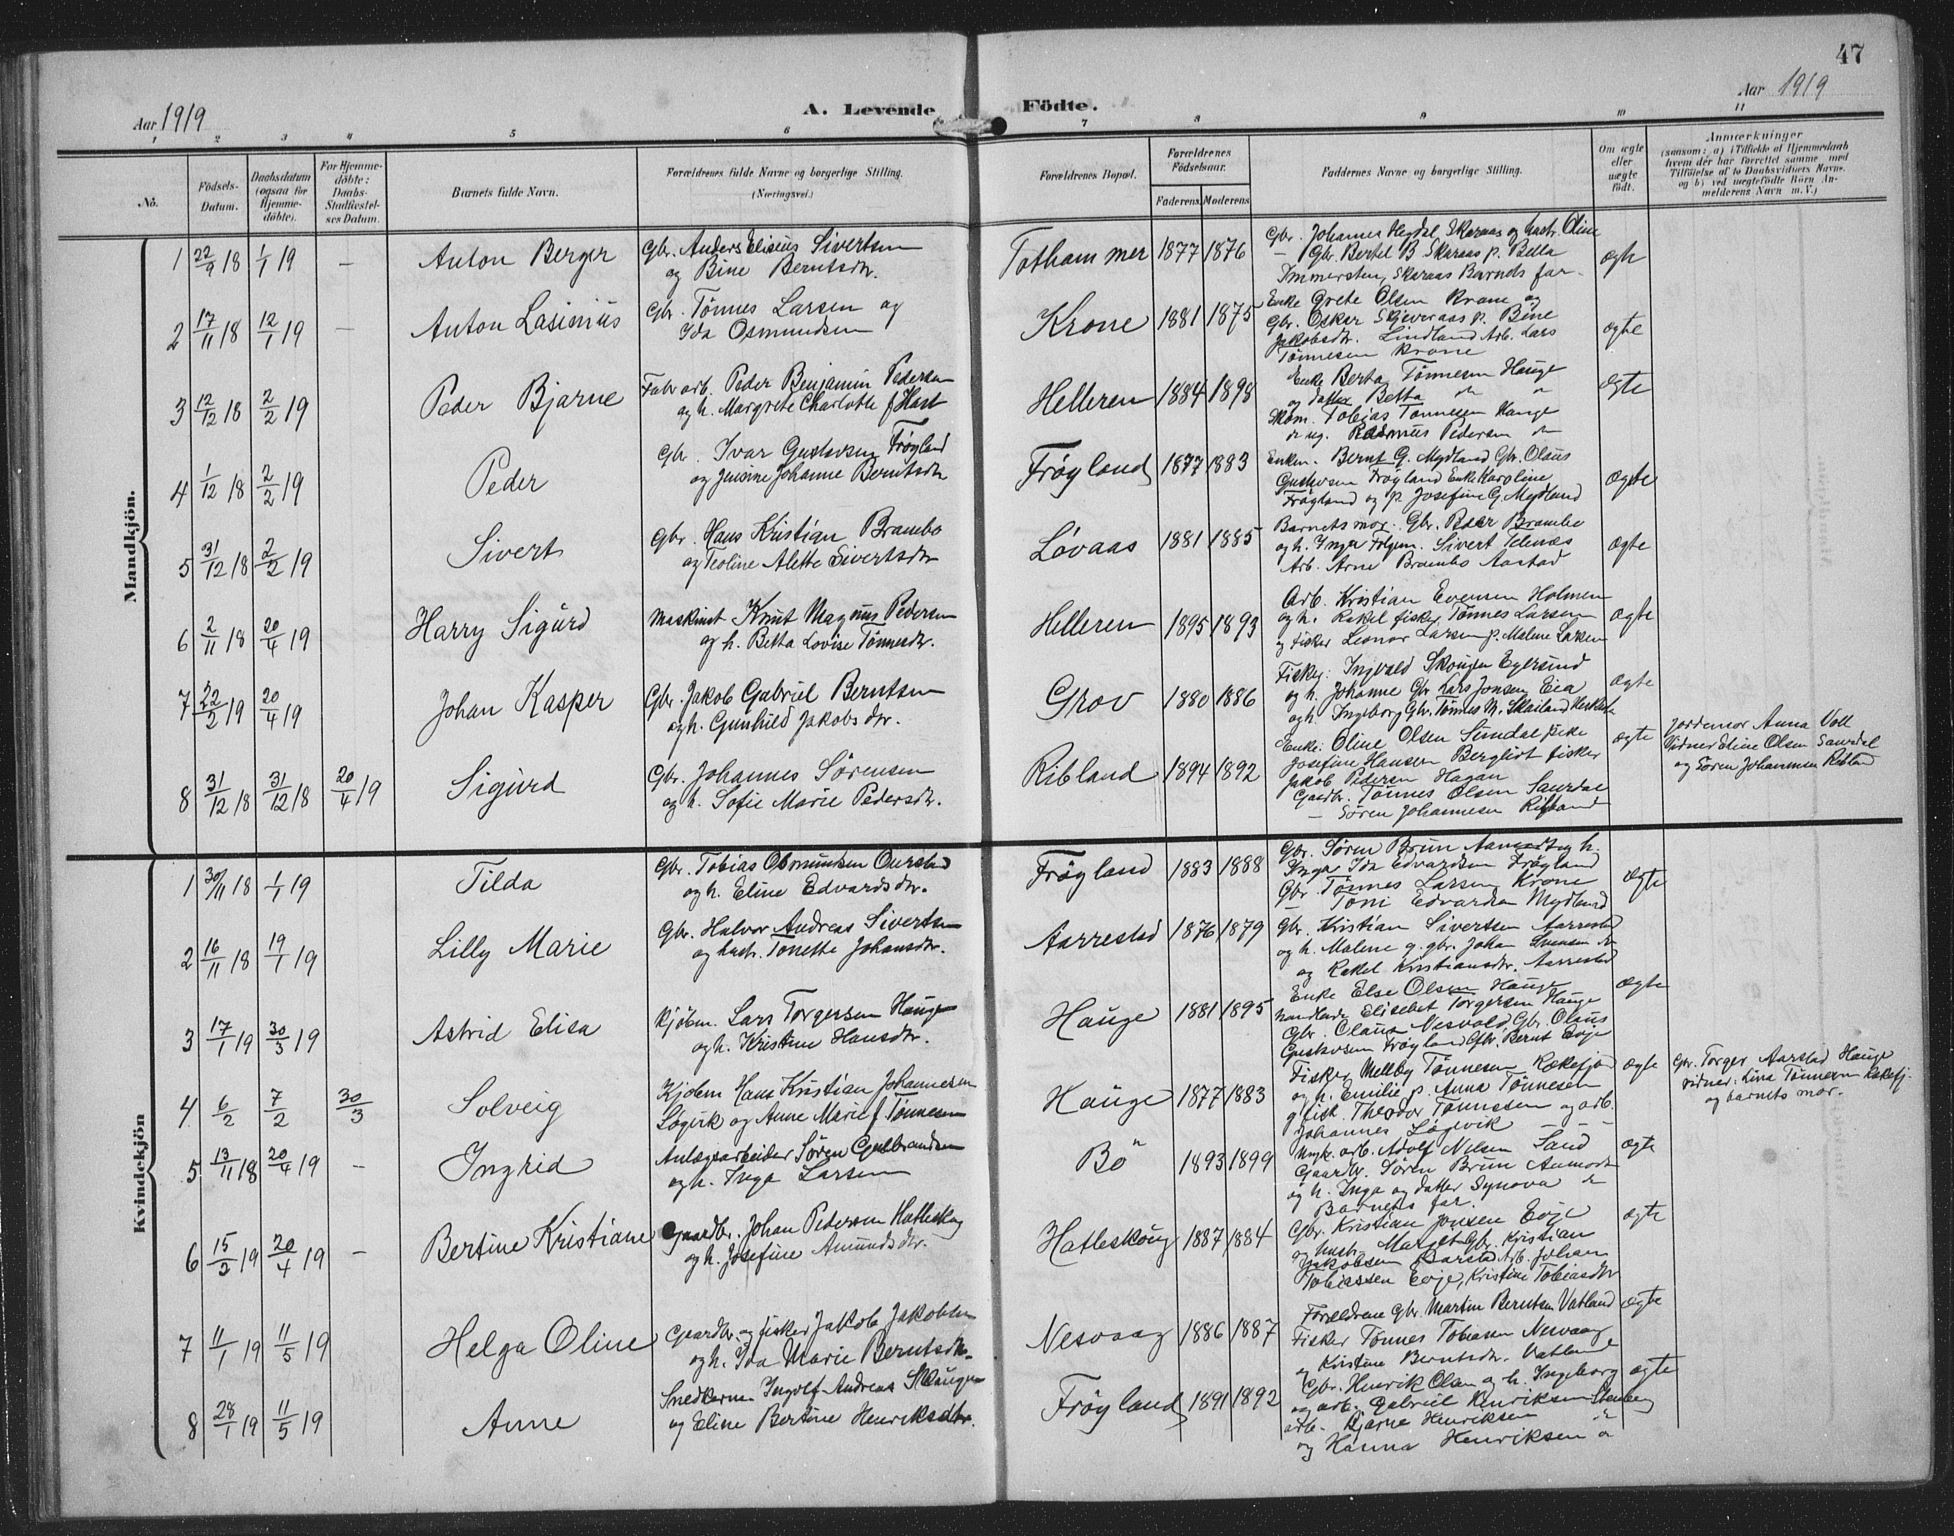 47
Aar 1919
A. Levende Födte.
Aar 1919
1 2 3 4 5 6 7 8 9 10 11
No.
Födsels-
Datum.
Daabsdatum
(ogsaa for
Hjemme-
döbte).
For Hjemme-
döbte:
Daabs-
Stadfæstel-
ses Datum.
Barnets fulde Navn.
Forældrenes fulde Navne og borgerlige Stilling.
(Næringsvei.)
Forældrenes Bopæl.
Forældrenes
Födselsaar.
Faderens Moderens
Faddernes Navne og borgerlige Stilling.
Om ægte
eller
uægte
födt.
Anmærkninger
(saasom: a) i Tilfælde af Hjemmedaab
hvem der har forrettet samme med
Tilföielse af to Daabsvidners Navne.
og b) ved uægtefödte Börn An-
melderens Navn m. V.)
Mandkjön.
1 22/9 18 1/1 19 — Anton Berger
Gbr. Anders Elisius Sivertsen
og Bine Berntsdtr.
Tothammer 1877 1876
Gbr. Johannes Hegdal Skaraas og hustr. Oline
— Gbr. Bertel B Skaraas p. Bella
Immerstein, Skaraas Barnets far
ægte
2 17/11 18 12/1 19 — Anton Lasinius
Gbr. Tønnes Larsen og
Ida Osmundsen
Krone 1881 1875
Enke Grete Olsen Krone og
Gbr. Oskar Skjeveraas p. Bine
Jakobsdtr. Lindland Arb. Lars
Tønnesen Krone
ægte
3 12/12 18 2/2 19 Peder Bjarne
Fabr arb. Peder Benjamin Pedersen
og h. Margrete Charlotte f Hast
Helleren 1884 1898
Enke Berta Tønnesen Hauge
og datter Betta do "
Skom. Tobias Tønnesen Hauge
do ug. Rasmus Pedersen do
ægte
4 1/12 18 2/2 19 Peder
Gbr. Ivar Gustavsen Frøyland
og Jensine Johanne Berntsdtr
Frøyland 1877 1883
Enkem. Bernt G. Mydland Gbr. Olaus
Gustavsen Frøyland Enke Karoline
Frøyland og p. Josefine G. Mydland
ægte
5 31/12 18 2/2 19 Sivert
Gbr. Hans Kristian Brambo
og Teoline Alette Sivertsdtr
Løvaas 1881 1885
Barnets mor. Gbr. Peder Brambo
og h. Inga Ungm. Sivert Tengs
Arb. Arne Brambo Aastad
ægte
6 2/11 18 20/4 19 Harry Sigurd
Maskinist Knut Magnus Pedersen
og h. Betta Lovise Tønnesdtr.
Helleren 1895 1893
Arb. Kristian Evensen Holmen
og h. Rakel fisker Tønnes Larsen
og fisker Leonor Larsen p. Malene Larsen
ægte
7 22/2 19 20/4 19 Johan Kasper
Gbr. Jakob Gabriel Berntsen
og h. Gunhild Jakobsdtr.
Grov 1880 1886
Fisker Ingvald Skougen Egersund
og h. Johanne Gbr Lars Jonsen Eia
og h. Ingeborg Gbr. Tønnes M. Skailand
ægte
8 31/12 18 31/12 18 20/4 19 Sigurd
Gbr. Johannes Sørensen
og h. Sofie Marie Pedersdtr.
Ribland 1894 1892
Enke: Oline Olsen Surdal pike
Josefine Hansen Berglist fisker
Jakob Pedersen Hagan
Gaardbr. Tønnes Olsen Saurdal
— Søren Johannesen Ribland
ægte
Jordemor Anna Voll
Vidner Eline Olsen Saurdal
og Søren Johannesen Ribland
Kvindekjön
1 30/11 18 1/1 19 Tilda
Gbr. Tobias Osmundsen Ourstad
og h. Eline Edvardsdtr.
Frøyland 1883 1888
Gbr. Søren Brun Aamodt og h.
Inga Ida Edvardsen Frøyland
Gbr. Tønnes Larsen Krone
— Toni Edvardsen Mydland
ægte
2 16/11 18 19/1 19 Lilly Marie
Gbr. Halvor Andreas Sivertsen
og hustr. Tonette Johansdtr.
Aarrestad 1876 1879
Gbr. Kristian Sivertsen Aarrestad
og h. Malene g. gbr. Johan Svensen do
og Rakel Kristiansdtr. Aarrestad
ægte
3 17/1 19 30/3 19 Astrid Elisa
Kjøbm. Lars Torgersen Hauge
og h. Kristine Hansdtr.
Hauge 1881 1895
Enke Else Olsen Hauge
handlende Elisebet Torgersen Hauge
Gbr. Olaus Nesvold, Gbr. Olaus
Gustavsen Frøyland Gbr. Bernt Evje
ægte
4 6/2 7/2 30/3 Solveig
Kjøbm Hans Kristian Johannesen
Løgevik og Anne Marie f Tønnesen
Hauge 1877 1883
Fisker Melby Tønnesen Rækefjord
og h. Emilie p. Anna Tønnesen
g fisk. Theodor Tønnesen og arb.
Johannes Løgevik — — —
Gbr. Torger Aarstad Hauge
vidner: Lina Tønnesen Rækefj.
og barnets mor.
5 13/11 18 20/4 19 — Ingrid
Anlægsarbeider Søren Gulbrandsen
og h. Inga Larsen
Bö 1893 1899
Myk. arb. Adolf Nilsen Sand
Gaardbr. Søren Brun Aamodt
og h. Inga og datter Synova do
Barnets far.
ægte
6 15/2 19 20/4 19 — Bertine Kristiane
Gaardbr. Johan Pedersen Hatleskog
og h. Josefine Amundsdtr.
Hatleskoug 1887 1884
Gbr. Kristian Jonsen Evje
og hustr. Marget Gbr. Kristian
Jakobsen Barstad Arb. Johan
Tobiassen Evje, Kristine Tobiasdtr
ægte
7 11/1 19 11/5 19 Helga Oline
Gaardbr. og fisker Jakob Jakobsen
og h. Ida Marie Berntsdtr.
Nesvaag 1886 1887
Forældrene Gbr. Martin Berntsen Vatland
Fisker Tønnes Tobiassen Nesvaag
og Kristine Berntsdtr. Vatland
ægte
8 28/1 19 11/5 19 Anne
Snedkerne Ingolf Andreas Skougen
og Eline Bertine Henriksdtr.
Frøyland 1891 1892
Gbr. Henrik Olsen og h. Ingeborg
og arb. Gabriel Henriksen Stenberg
arb. Bjarne Henriksen
og Hanna Henriksen do
ægte